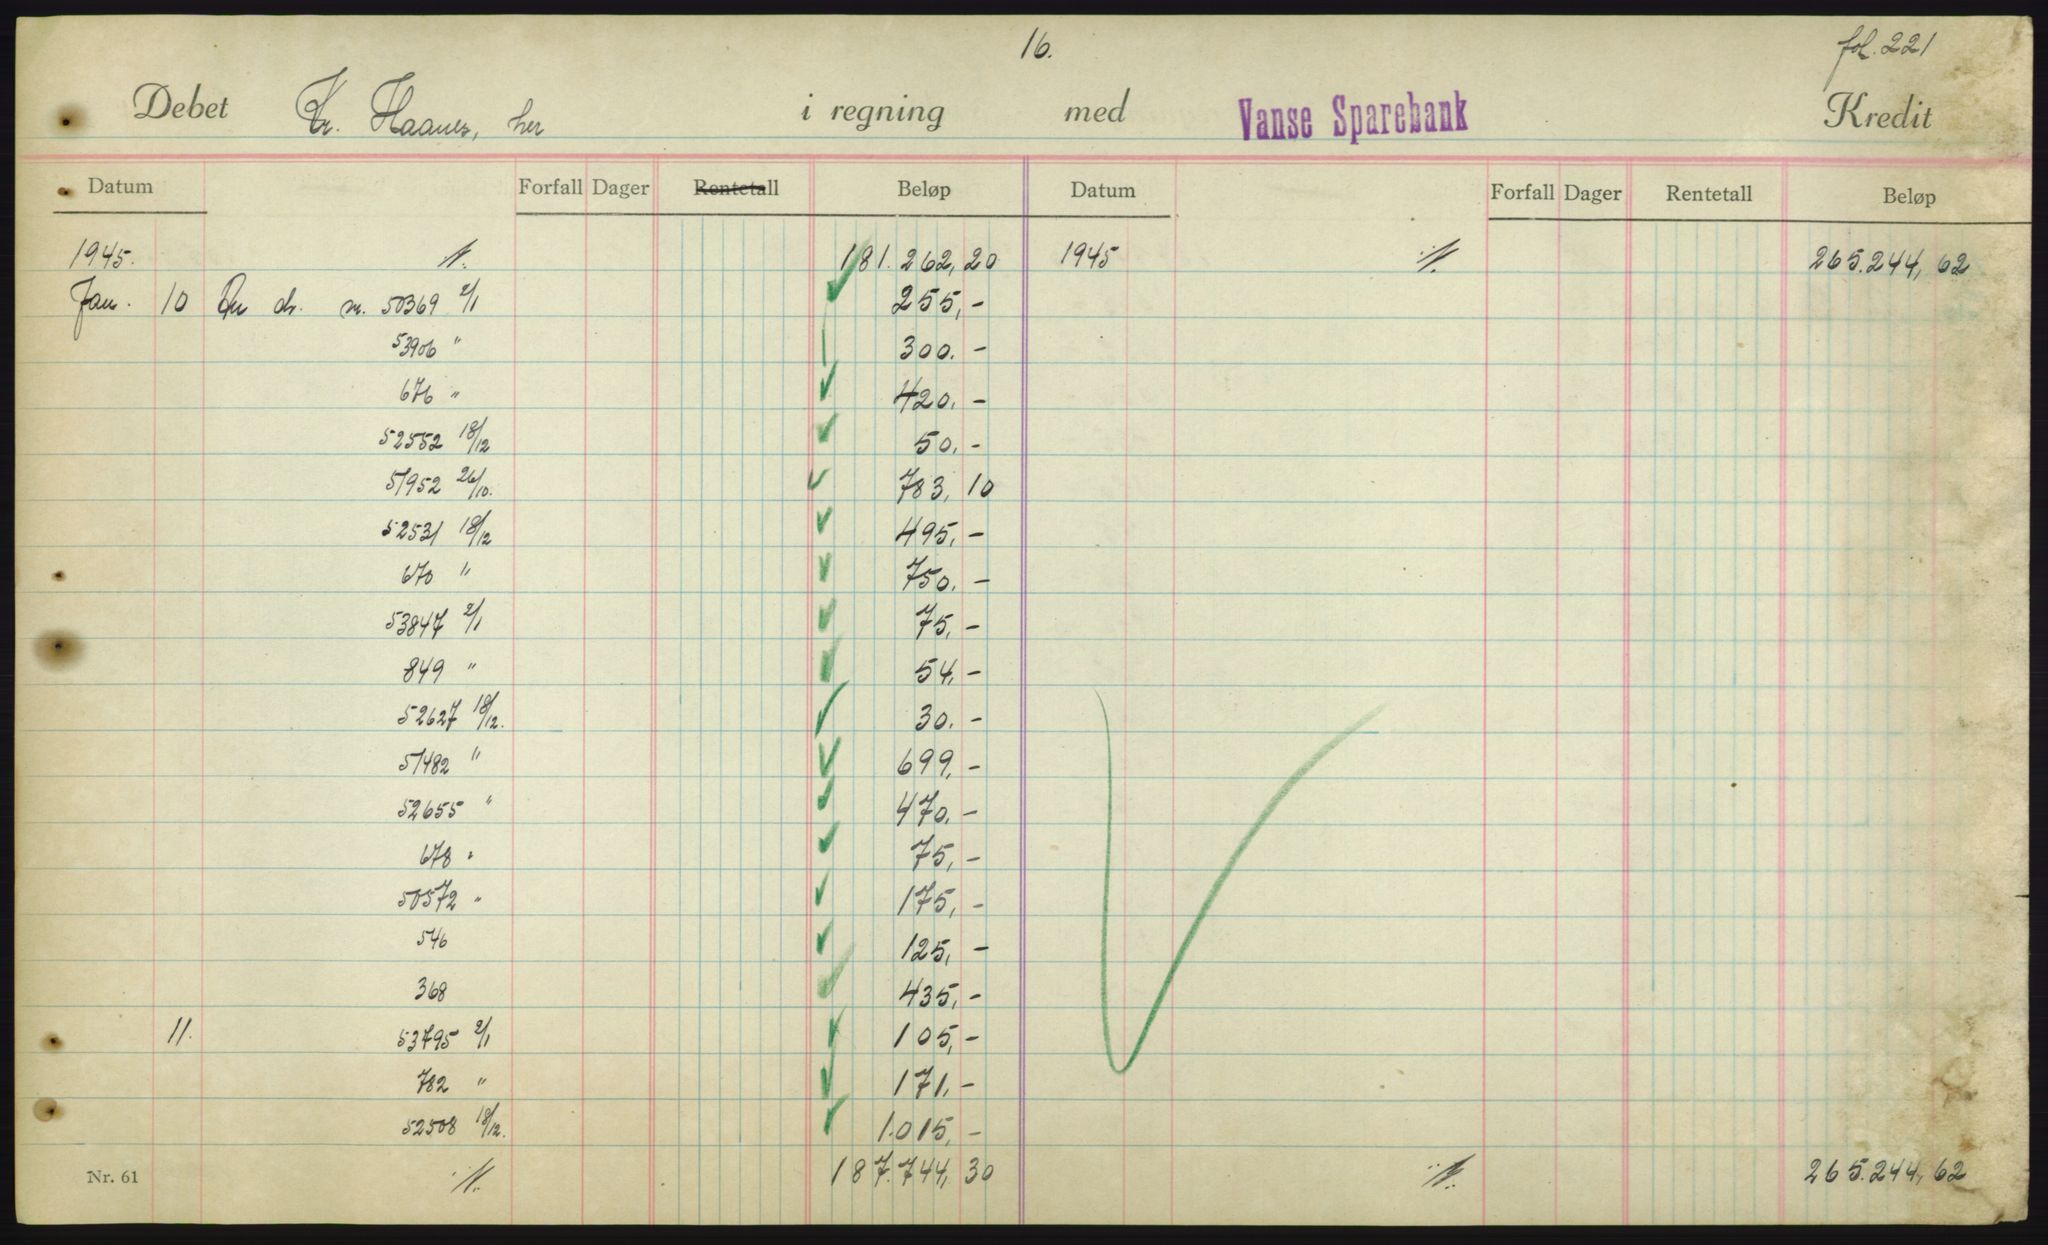 16.
fol. 221
Debet Kr. Haanes, her i regning med Vanse Sparebank Kredit
Datum Forfall Dager Rentetall Beløp Datum Forfall Dager Rentetall Beløp
1945. 181.262,20 1945 265.244,62
Jan. 10 dr. nr. 50369 2/1 255,-
53906 " 300.-
676 " 420.-
52552 18/12 50,-
51952 26/10. 783,10
52531 18/12 495,-
670 " 750.-
53847 2/1 75,-
849 " 54,-
52627 18/12. 30.-
51482 " 699,-
52655 " 470,-
678 " 75,-
50572 " 175,-
546 125,-
368 435,-
11. 53795 2/1 105,-
782 " 171.-
52508 18/12. 1.015,-
Nr. 61 187.744,30 265.244,62